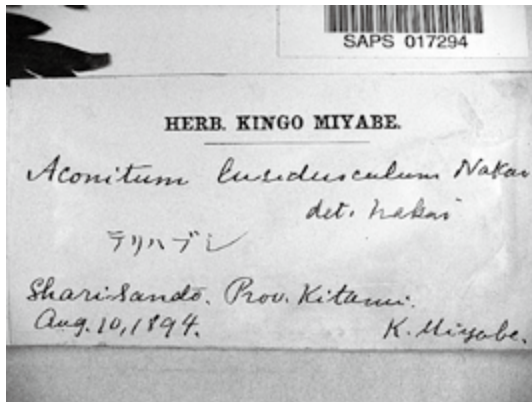 SAPS 017294
HERB. KINGO MIYABE.
Aconitum lucidusculum Nakai
det. Nakai
テリハブシ
Sharisando. Prov. Kitami.
Aug. 10, 1894.
K. Miyabe.